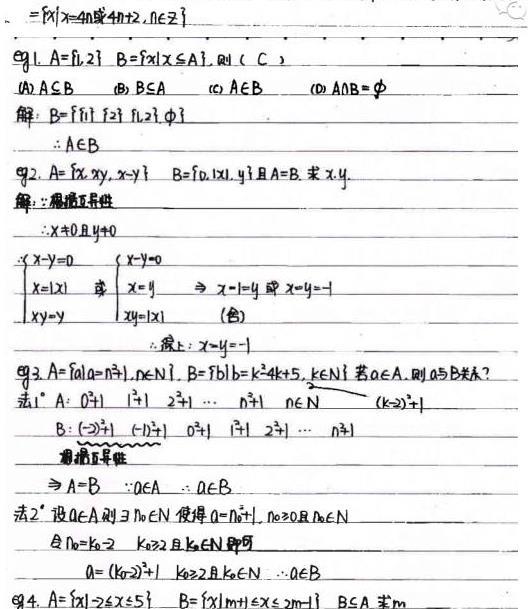 ={x|x=4n或4n+2, n∈Z}
eg1. A={1,2} B={x|x⊆A}, 则 ( C )
(A) A⊆B (B) B⊆A (C) A∈B (D) A∩B=ϕ
解: B={{1} {2} {1,2} ϕ}
∴A∈B
eg2. A={x, xy, x-y} B={0, |x|, y} 且 A=B. 求 x.y.
解: ∵根据互异性
∴x≠0且y≠0
∴{ x-y=0 { x-y=0
x=|x| 或 x=y ⇒ x=1=y 或 x=y=-1
xy=y xy=|x| (舍)
∴综上: x=y=-1
eg3. A={a|a=n²+1, n∈N}, B={b|b=k²-4k+5, k∈N} 若a∈A. 则a与B关系?
法1° A: 0²+1 1²+1 2²+1 … n²+1 n∈N (k-2)²+1
B: (-2)²+1 (-1)²+1 0²+1 1²+1 2²+1 … n²+1
根据互异性
⇒ A=B ∵a∈A ∴a∈B
法2° 设a∈A 则∃n₀∈N 使得 a=n₀²+1, n₀≥0且n₀∈N
令n₀=k₀-2 k₀≥2且k₀∈N即可
a=(k₀-2)²+1 k₀≥2且k₀∈N ∴a∈B
eg4. A={x|-2≤x≤5} B={x|m+1≤x≤2m-1} B⊆A 求m